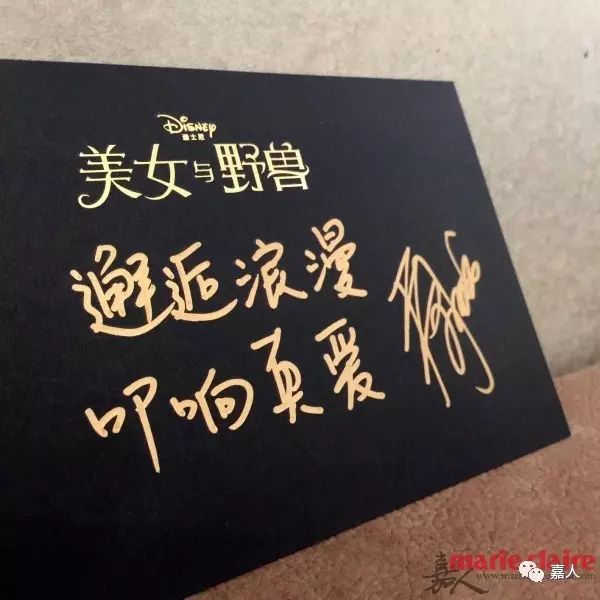 Disney
迪士尼
美女与野兽
邂逅浪漫
叩响真爱
marie claire
嘉人 www.marieclaire
嘉人